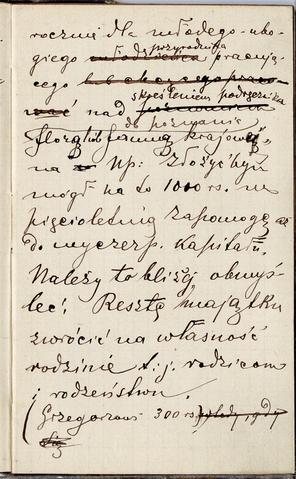 rocznie dla młodego ubo-
giego młodzieńca przyrodnika pracują-
cego nad skreśleniem podręcznika
do poznania
flory lub fauny krajowej,
na Np: Złożyćbym
mógł na to 1000 rs. na
pięcioletnią zapomogę aż
do wyczerp. kapitału.
Należy to bliżej obmyś-
leć! Resztę majątku
zwrócić na własność
rodzinie t.j. rodzicom
i rodzeństwu.
(Grzegorzowi 300 rs.